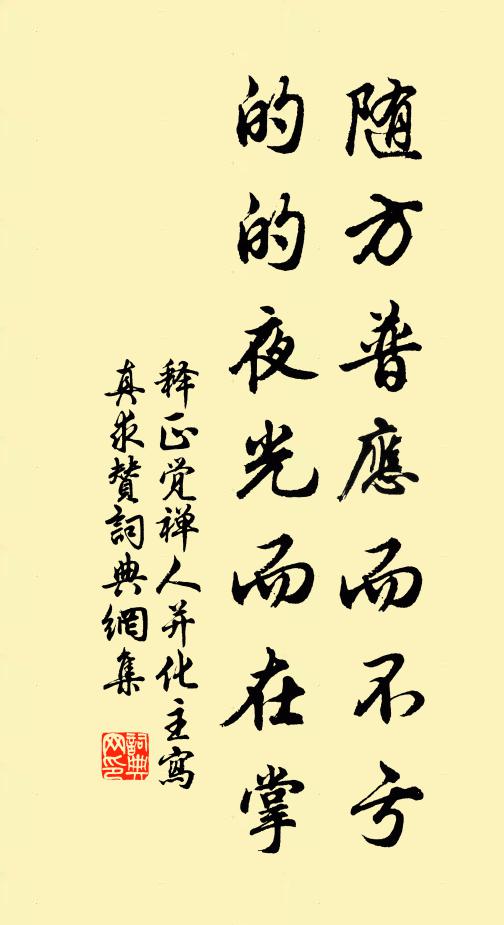 随方普應而不亏
的的夜光而在掌
释正觉禅人并化主寫
真求赞詞典網集
詞典网印